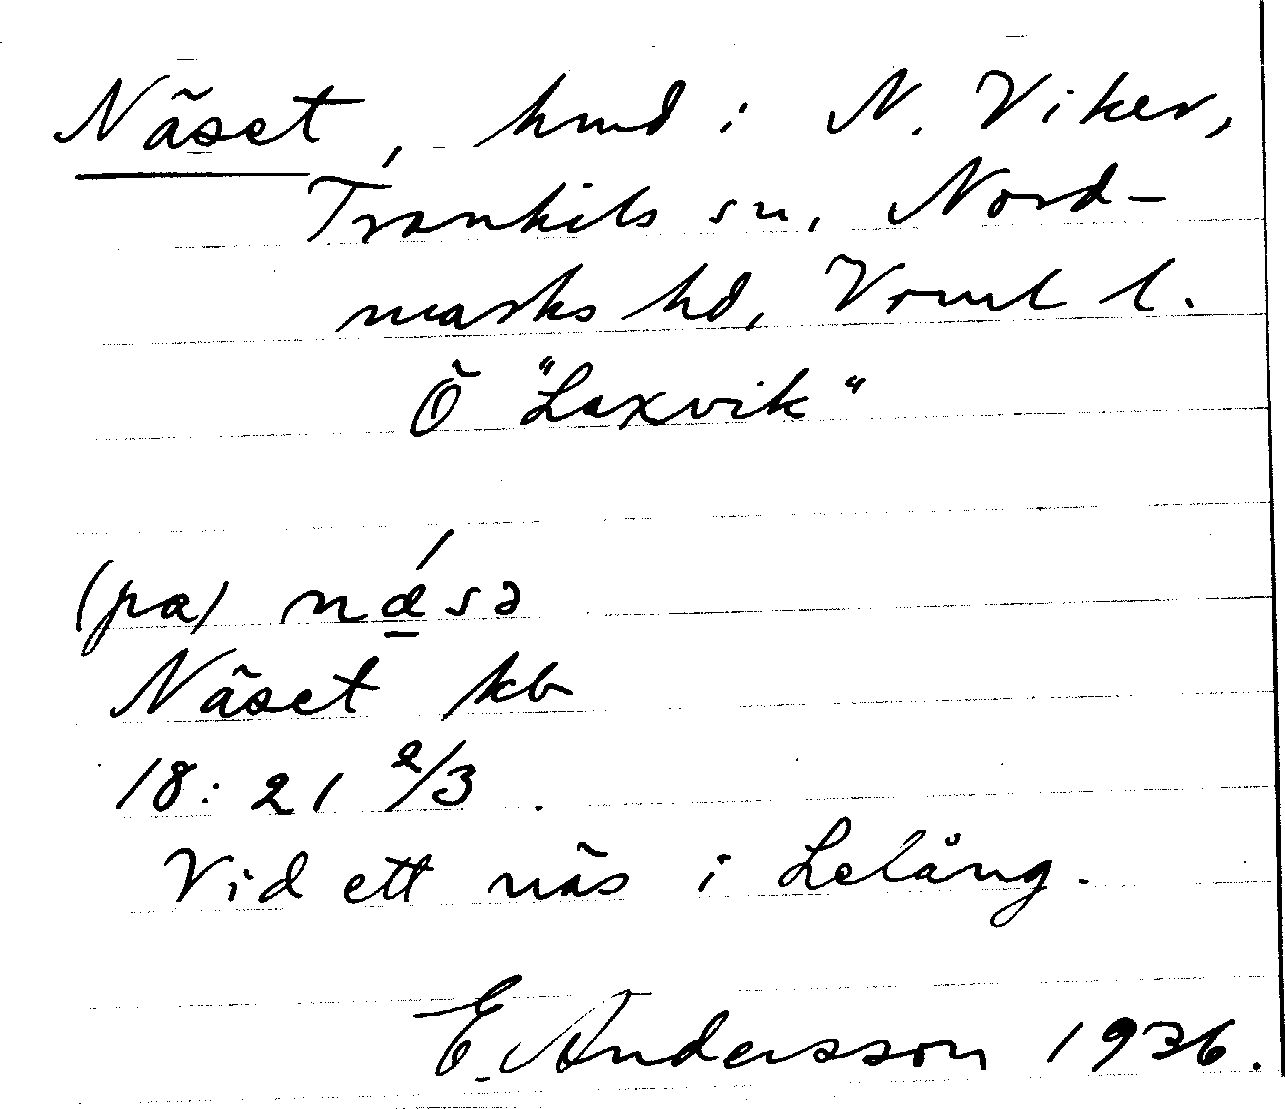 Näset, hmd i N. Viker,
Trankils sn, Nord-
marks hd, Vrml l.
Ö "Laxvik"
(pa) nä́sə
Näset kb
18: 21 2/3.
Vid ett näs i Lelång.
E. Andersson 1936.